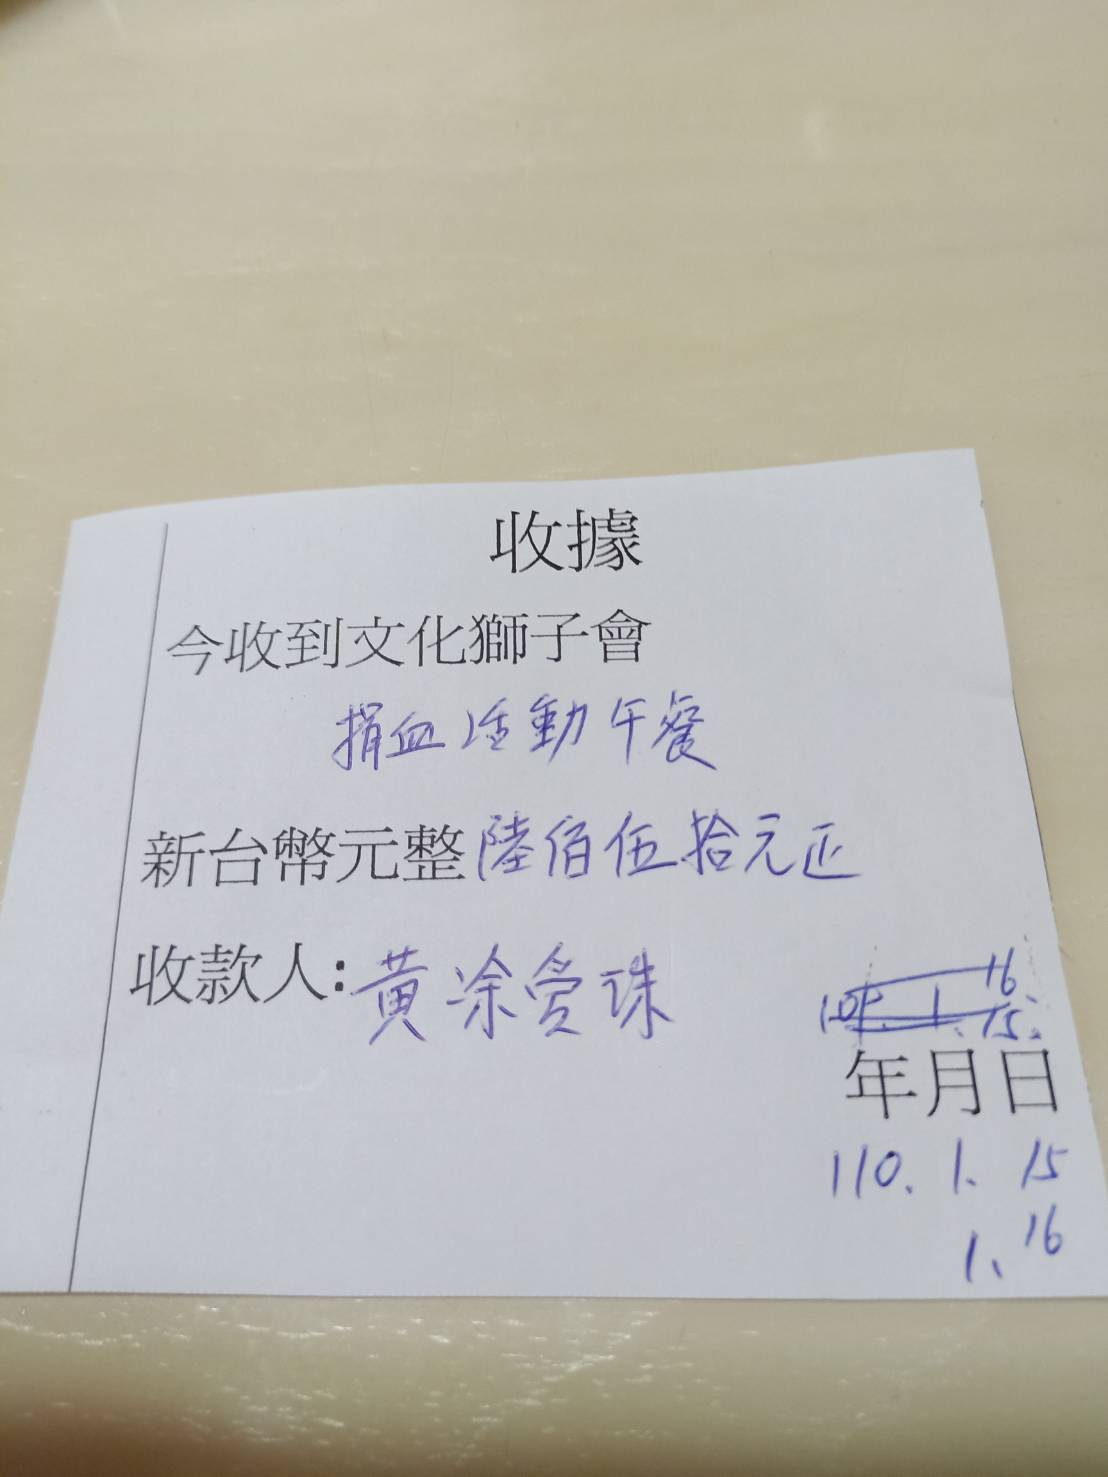 收據
今收到文化獅子會
捐血活動午餐
新台幣元整陸佰伍拾元正
收款人:黃涂受珠
16
1. 15.
年月日
110. 1. 15
1. 16